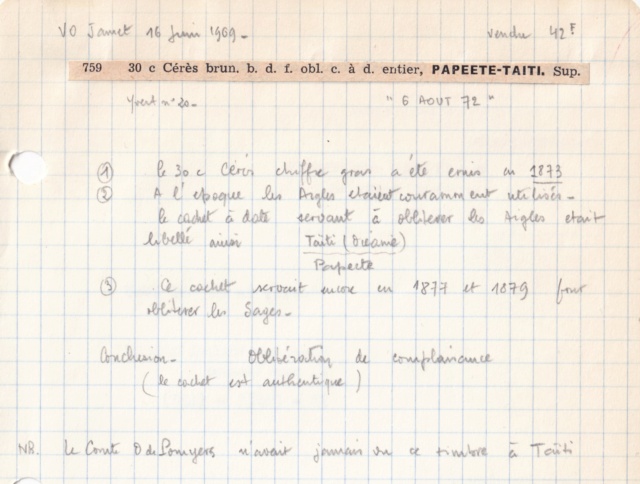 VO Jamet 16 Juin 1969 - vendu 42F
759 30 c Cérès brun. b. d. f. obl. c. à d. entier, PAPEETE-TAITI. Sup.
Yvert n° 20 - "6 AOUT 72"
① le 30 c Cérès chiffre gros a été émis en 1873
② A l'époque les Aigles etaient couramment utilisés -
le cachet à date servant à obliterer les Aigles etait
libellé ainsi Taïti (Océanie)
Papeete
③ Ce cachet servait encore en 1877 et 1879 pour
obliterer les Sages -
Conclusion - Oblitération de complaisance
( le cachet est authentique )
NB. Le Comte O de Pomyers n'avait jamais vu ce timbre à Taïti